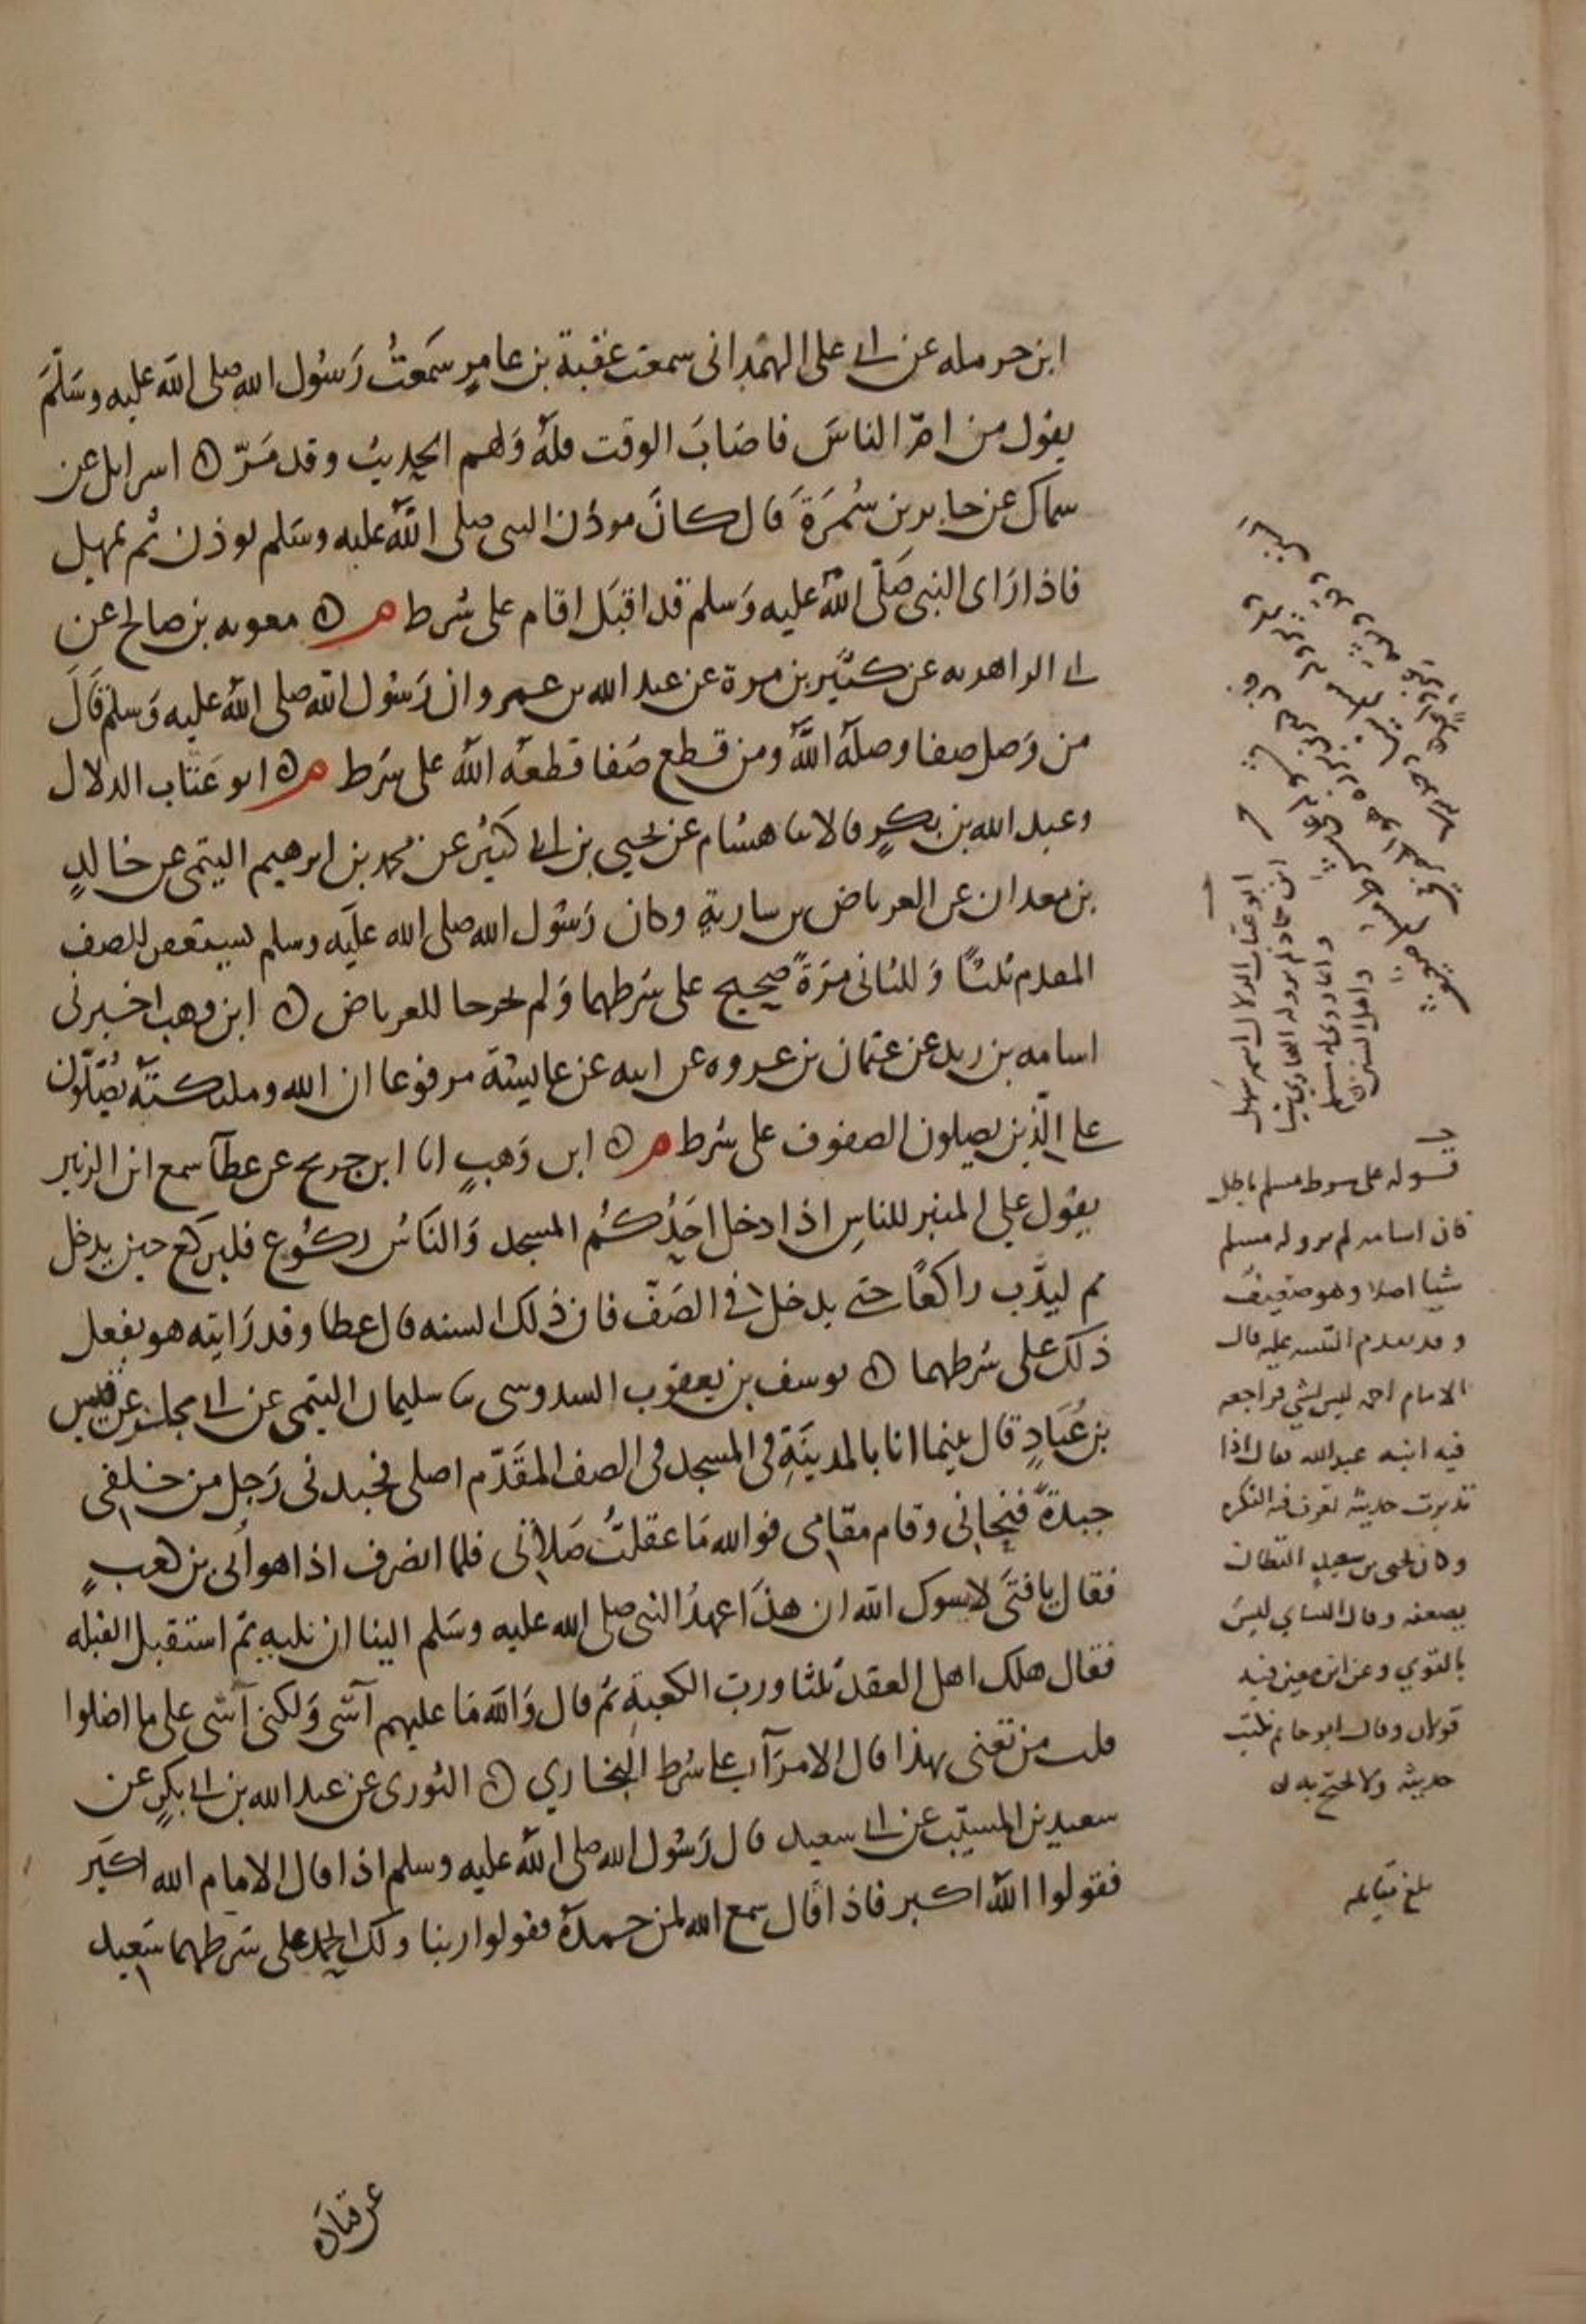 ابن حرمله عن ابى على الهمدانى سمعت عقبة بن عامر سمعت رسول الله صلى الله عليه وسلم
يقول من امّ الناس فاصاب الوقت فله ولهم الحديث وقد مرّ ه اسرايل عن
سماك عن جابر بن سمرة قال كان موذن النبى صلى الله عليه وسلم يوذن ثم يمهل
فاذا راى النبى صلى الله عليه وسلم قد اقبل اقام على شرط م ه معويه بن صالح عن
ابى الزاهريه عن كثير بن مرة عن عبد الله بن عمرو ان رسول الله صلى الله عليه وسلم قال
من وصل صفا وصله الله ومن قطع صفا قطعه الله على شرط م ه ابو عتاب الدلال
وعبد الله بن بكر قالا ثنا هشام عن يحيى بن ابى كثير عن محمد بن ابرهيم التيمى عن خالد
بن معدان عن العرباض بن سارية وكان رسول الله صلى الله عليه وسلم يستغفر للصف
المقدم ثلثا وللثانى مرة صحيح على شرطهما ولم يخرجا للعرباض ه ابن وهب اخبرنى
اسامه بن زيد عن عثمان بن عروه عن ابيه عن عايشة مرفوعا ان الله وملئكته يصلون
على الذين يصلون الصفوف على شرط م ه ابن وهب انا ابن جريج عن عطآ سمع ابن الزبير
يقول على المنبر للناس اذا دخل احدكم المسجد والناس ركوع فليركع حين يدخل
ثم ليدب راكعا حتى يدخل فى الصف فان ذلك السنه قال عطا وقد رايته هو يفعل
ذلك على شرطهما ه يوسف بن يعقوب السدوسى ثنا سليمان التيمى عن ابى مجلز عن قيس
بن عباد قال بينما انا بالمدينة فى المسجد فى الصف المقدم اصلى فجبدنى رجل من خلفى
جبدة فنحانى وقام مقامى فوالله ما عقلت صلاتى فلما انصرف اذا هو ابى بن كعب
فقال يا فتى لا يسوك الله ان هذا عهد النبى صلى الله عليه وسلم الينا ان نليه ثم استقبل القبله
فقال هلك اهل العقد ثلثا ورب الكعبة ثم قال والله ما عليهم آسى ولكنى آسى على ما اضلوا
قلت من تعنى بهذا قال الامرآ على شرط البخاري ه الثورى عن عبد الله بن ابى بكر عن
سعيد بن المسيب عن ابى سعيد قال رسول الله صلى الله عليه وسلم اذا قال الامام الله اكبر
فقولوا الله اكبر فاذا قال سمع الله لمن حمده فقولوا ربنا ولك الحمد على شرطهما سعيد
ابو عتاب الدلال اسمه سهل
ابن حماد لم يرو له البخاري شيا
وانما روى له مسلم
واهل السنن
قوله على شرط مسلم باطل
فان اسامه لم يرو له مسلم
شيا اصلا وهو ضعيف
وقد تقدم التنبيه عليه قال
الامام احمد ليس بشي فراجعه
فيه ابنه عبد الله فقال اذا
تدبرت حديثه تعرف فيه النكره
وكان يحيى بن سعيد القطان
يضعفه وقال النساي ليس
بالقوي وعن ابن معين فيه
قولان وقال ابو حاتم يكتب
حديثه ولا يحتج به
بلغ مقابله
عن قتاده